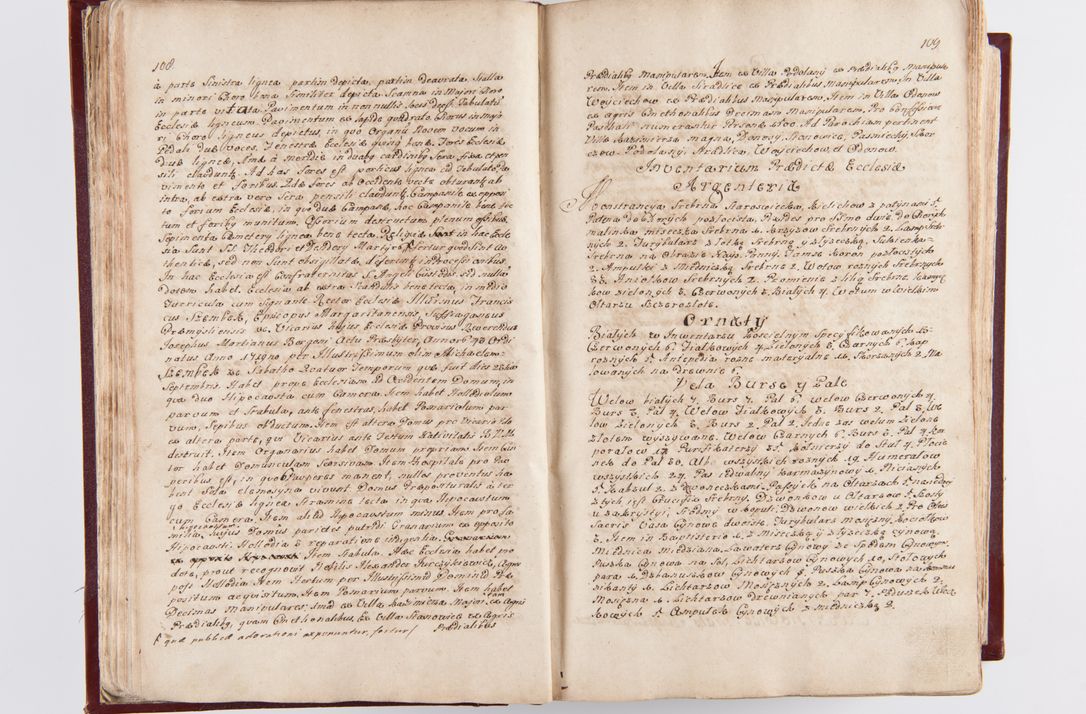 108
à parte Sinistra lignea, partim depicta, partim deaurata, Stalla
in minori Choro bona Similiter depicta Scamna in Majori Choro
in parte vitiata. Pavimentum in nonnullis locis deest. Tabulatū
Ecclesiæ ligneum. Pavimentum ex lapide quadrato. Chorus in majo
ri Choro ligneus depictus, in quo Organū Novem vocum in
Pedali duæ Voces. Fenestræ Ecclesiæ bonæ. Fores Ecclesiæ
Duæ ligneæ, Una à
clauduntur. Ad has fores est porticus lignea cū Tabulato, Pa
vimento et foribus. Aliæ fores ab Occidente vecte obturantur ab
intra, ab extra vero Sera pensili clauduntur. Campanile ex opposi
to forium Ecclesiæ, in quo duæ Campanæ, hoc Campanile bene tec
tum et foribus munitum. Ossorium destructum plenum ossibus,
Sepimenta Cæmeterij lignea bene tecta. Reliquiæ in hac Eccle
sia Sunt SS. Theodori et Martyris fertur quod sint au
thenticæ, sed non Sunt obsigillatæ, deferuntur in Processionibus.
In hac Ecclesia est Confraternitas S. Angeli Custodis, sed nullā
Dotem habet. Ecclesia ab extra Scandulis bene tecta, in medio
Turricula cum Signante. Rector Ecclesiæ Illsmus Francis
cus Szembek, Episcopus Margaritanensis, Suffraganeus
Præmysliensis &c. Vicarius hujus Ecclesiæ Provisus Reverendus
Josephus Martianus Borzoni Actu Præsbyter, Annorū 48 Ordi
natus Anno 1719no per Illustrissimum olim Michaelem
Szembek &c. Sabatho Quatuor Temporum quæ fuit dies 23tia
Septembris. Habet prope Ecclesiam ad Occidentem Domum, in
qua duo Hipocausta cum Camera. Item habet Hallodiolum
parvum et Stabula, ante fenestras, habet Pomariolum par
vum, Sepibus obductum. Item est altera Domus pro Vicario sed
ex altera parte, quā Vicarius ante Festum Nativitatis B.V.M.
destruit. Item Organarius habet Domum propriam. Item Can
tor habet Domunculam Seorsivam. Item Hospitale pro Pau
peribus est, in quo Pauperes manent, nullos proventus ha
bent Sola elemosyna vivunt. Domus Præposituralis à ter
go Ecclesiæ lignea, Stramine tecta in qua Hipocaustum
cum Camera. Item aliud Hipocaustum minus. Item pro fa
milia Hipocaustum hujus Domus parietes putridi. Granarium ex opposito
Hipocausti. Hallodia reparatione indigentia.
Item Stabula. Hæc Ecclesia habet po
dotē, prout recognovit Nobilis Alexander Hurczykiewicz,
posi Hallodia. Item Hortum per Illustrissimū Dominū Præ
positum acquisitum. Item Pomarium parvum. Item habet
Decimas manipulares: imò ex Villa Kazimirza Major, tam ex Agris
Prædialibus, quam Cmethonalibus. Ex Villa Stanowice ex Agris
quæ publicæ adorationi exponuntur, fertur/ Prædialibus
109
Prædialibus manipularem, Item ex Villa Podolany ex Prædialibus manipula
rem. Item in Villa Stradice ex Prædialibus Manipularem. In Villa
Woyciechow ex Prædialibus Manipularem. Item in Villa Odonow
ex agris Cmethonalibus Decimam Manipularem. Pro Confessione
Paschali numerantur Personæ 1700. Ad Parochiam pertinent
Villa Kazimirza magna, Donosy, Stanowice, Paśmiechy,
Podolany, Stradlice, Woyciechow, et Odonow.
Inventarium Prædictæ Ecclesiæ
Argenteria
Monstrancya Srebrna Staroswiecka, Kielichow 3. z patynami 5.
Patyna do Chorych pozłocista, Puszka pro SSmo dwie, do Chorych
malinka, miseczka Srebrna 1. Krzyżow Srebrnych 2. Lamp Srebr
nych 2. Turybularz z Łotką Srebrną y łyszeczką. Sukienka
Srebrna na Obrazie Nays: Panny. Tamże Koron pozłocistych
2. Ampułki z Miedniczką Srebrne 2. Wotow roznych Srebrnych
33. Aniołkow Srebrnych 2. Promienie z liliy Srebrne, Kamyc
kow zielonych 3. Czerwonych 2. Białych 4. Wotum w Wielkim
Ołtarzu Szczerozłote.
Ornaty
Białych w Inwentarzu Kościelnym Specyfikowanych 13.
Czerwonych 6. Fiałkowych 4. Zielonych 3. Czarnych 6. Kap
roznych 5. Antepedia rozne materyalne 14. Skorzanych 2. Ma
lowanych na Drewnie 6.
Vela Bursæ y Palæ
Welow białych 7. Burs 7. Pal 6. Welow Czerwonych 4.
Burs 3. Pal 4. Welow Fiałkowych 3. Burs 2. Pal 3. We
low Zielonych 3. Burs 2. Pal 2. Jedne zas welum Zielone
złotem wyszywane. Welow Czarnych 6. Burs 6. Pal 4. Kor
poralow 12. Puryfikaterzy 35. Kołnierzy do Stuł 4. Płocie
nek do Pal 30. Alb wszystkich roznych 19. Humerałow
wszystkich 24. Pas jedwabny karmazynowy 1. Nicianych
5. Kabzul 2. z Dzwoneczkami. Passyjek na Ołtarzach 5. na jedney
z tych jest Crucifix Srebrny. Dzwonkow u Ołtarzow 5. Kosty
u zakrystyi, Szredny w kopule, Dzwonow wielkich 2. Pro Oleis
Sacris Vasa Cynowe dwoiste, Turybularz mosiężny, Kociołkow
2. Item in Baptisterio 1, z miseczką y łyszeczką cynową
Miednica miedziana, Lawaterz Cynowy ze Spodem Cynowym.
Puszka Cynowa na sol, Lichtarzow Cynowych 10. Stołowych
para 1. Dzbanuszkow Cynowych 5. Puszka Cynowa na Komuni
kanty 1. Lichtarzow Mosiężnych 2. Lamp Cynowych 2.
Mosiężna 1. Lichtarzow Drewnianych par 7. Poduszek
kowych 5. Ampułek Cynowych z miedniczką 2.